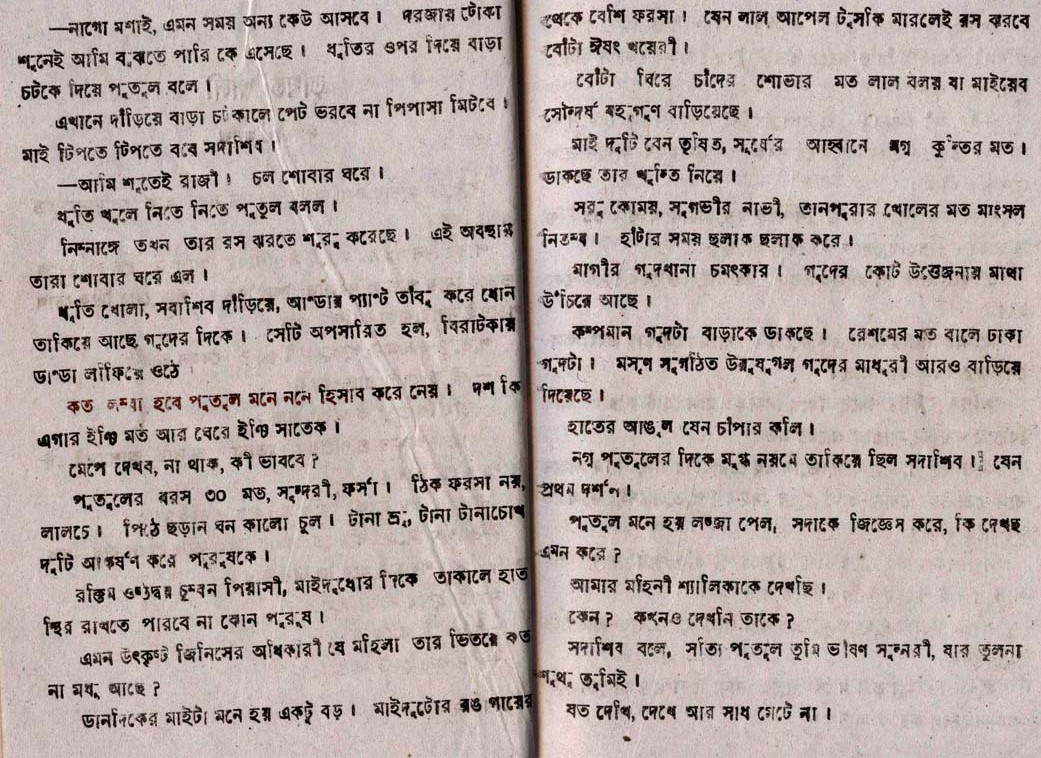 —নাগো মশাই, এমন সময় অন্য কেউ আসবে। দরজায় টোকা
শুনেই আমি বুঝতে পারি কে এসেছে। ধুতির ওপর দিয়ে বাড়া
চটকে দিয়ে পুতুল বলে।
এখানে দাঁড়িয়ে বাড়া চটকালে পেট ভরবে না পিপাসা মিটবে।
মাই টিপতে টিপতে বলে সদাশিব।
—আমি শুতেই রাজী। চল শোবার ঘরে।
ধুতি খুলে নিতে নিতে পুতুল বলল।
নিম্নাঙ্গে তখন তার রস ঝরতে শুরু করেছে। এই অবস্থায়
তারা শোবার ঘরে এল।
ধুতি খোলা, সদাশিব দাঁড়িয়ে, আণ্ডার প্যাণ্ট তাঁবু করে ধোন
তাকিয়ে আছে গুদের দিকে। সেটি অপসারিত হল, বিরাটকায়
ডাণ্ডা লাফিয়ে ওঠে
কত লম্বা হবে পুতুল মনে মনে হিসাব করে নেয়। দশ কি
এগার ইঞ্চি মত আর ঘেরে ইঞ্চি সাতেক।
মেপে দেখব, না থাক, কী ভাববে?
পুতুলের বয়স ৩০ মত, সুন্দরী, ফর্সা। ঠিক ফরসা নয়,
লালচে। পিঠে ছড়ান ঘন কালো চুল। টানা ভ্রু, টানা টানাচোখ
দুটি আকর্ষণ করে পুরুষকে।
রক্তিম ওষ্ঠদ্বয় চুম্বন পিয়াসী, মাইদুখোর দিকে তাকালে হাত
স্থির রাখতে পারবে না কোন পুরুষ।
এমন উৎকৃষ্ট জিনিসের অধিকারী যে মহিলা তার ভিতরে কত
না মধু আছে?
ডানদিকের মাইটা মনে হয় একটু বড়। মাইদুটোর রঙ গায়ের
থেকে বেশি ফরসা। যেন লাল আপেল টুসকি মারলেই রস ঝরবে
বোঁটা ঈষৎ খয়েরী।
বোঁটা ঘিরে চাঁদের শোভার মত লাল বলয় যা মাইয়ের
সৌন্দর্য বহুগুণ বাড়িয়েছে।
মাই দুটি যেন তৃষিত, সূর্যের আহ্বানে মগ্ন কুন্তির মত।
ডাকছে তার খুন্তি নিয়ে।
সরু কোমর, সুগভীর নাভী, তানপুরার খোলের মত মাংসল
নিতম্ব। হাঁটার সময় ছলাক ছলাক করে।
মাগীর গুদখানা চমৎকার। গুদের কোট উত্তেজনায় মাথা
উঁচিয়ে আছে।
কম্পমান গুদটা বাড়াকে ডাকছে। রেশমের মত বালে ঢাকা
গুদটা। মসৃণ সুগঠিত উরুযুগল গুদের মাধুরী আরও বাড়িয়ে
দিয়েছে।
হাতের আঙুল যেন চাঁপার কলি।
নগ্ন পুতুলের দিকে মুগ্ধ নয়নে তাকিয়ে ছিল সদাশিব। যেন
প্রথম দর্শন।
পুতুল মনে হয় লজ্জা পেল, সদাকে জিজ্ঞেস করে, কি দেখছ
এমন করে?
আমার মহিনী শ্যালিকাকে দেখছি।
কেন? কখনও দেখনি তাকে?
সদাশিব বলে, সত্যি পুতুল তুমি ভীষণ সুন্দরী, যার তুলনা
শুধু তুমিই।
যত দেখি, দেখে আর সাধ মেটে না।